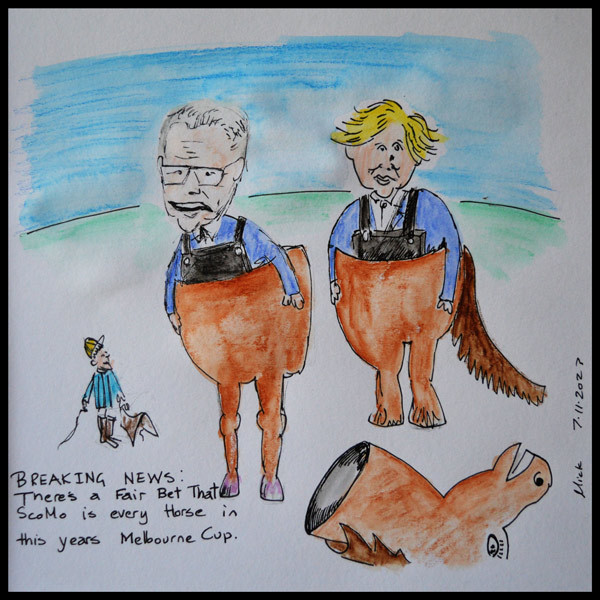 BREAKING NEWS:
There's a Fair Bet That
ScoMo is every Horse in
this years Melbourne Cup.
Mick 7.11.2027